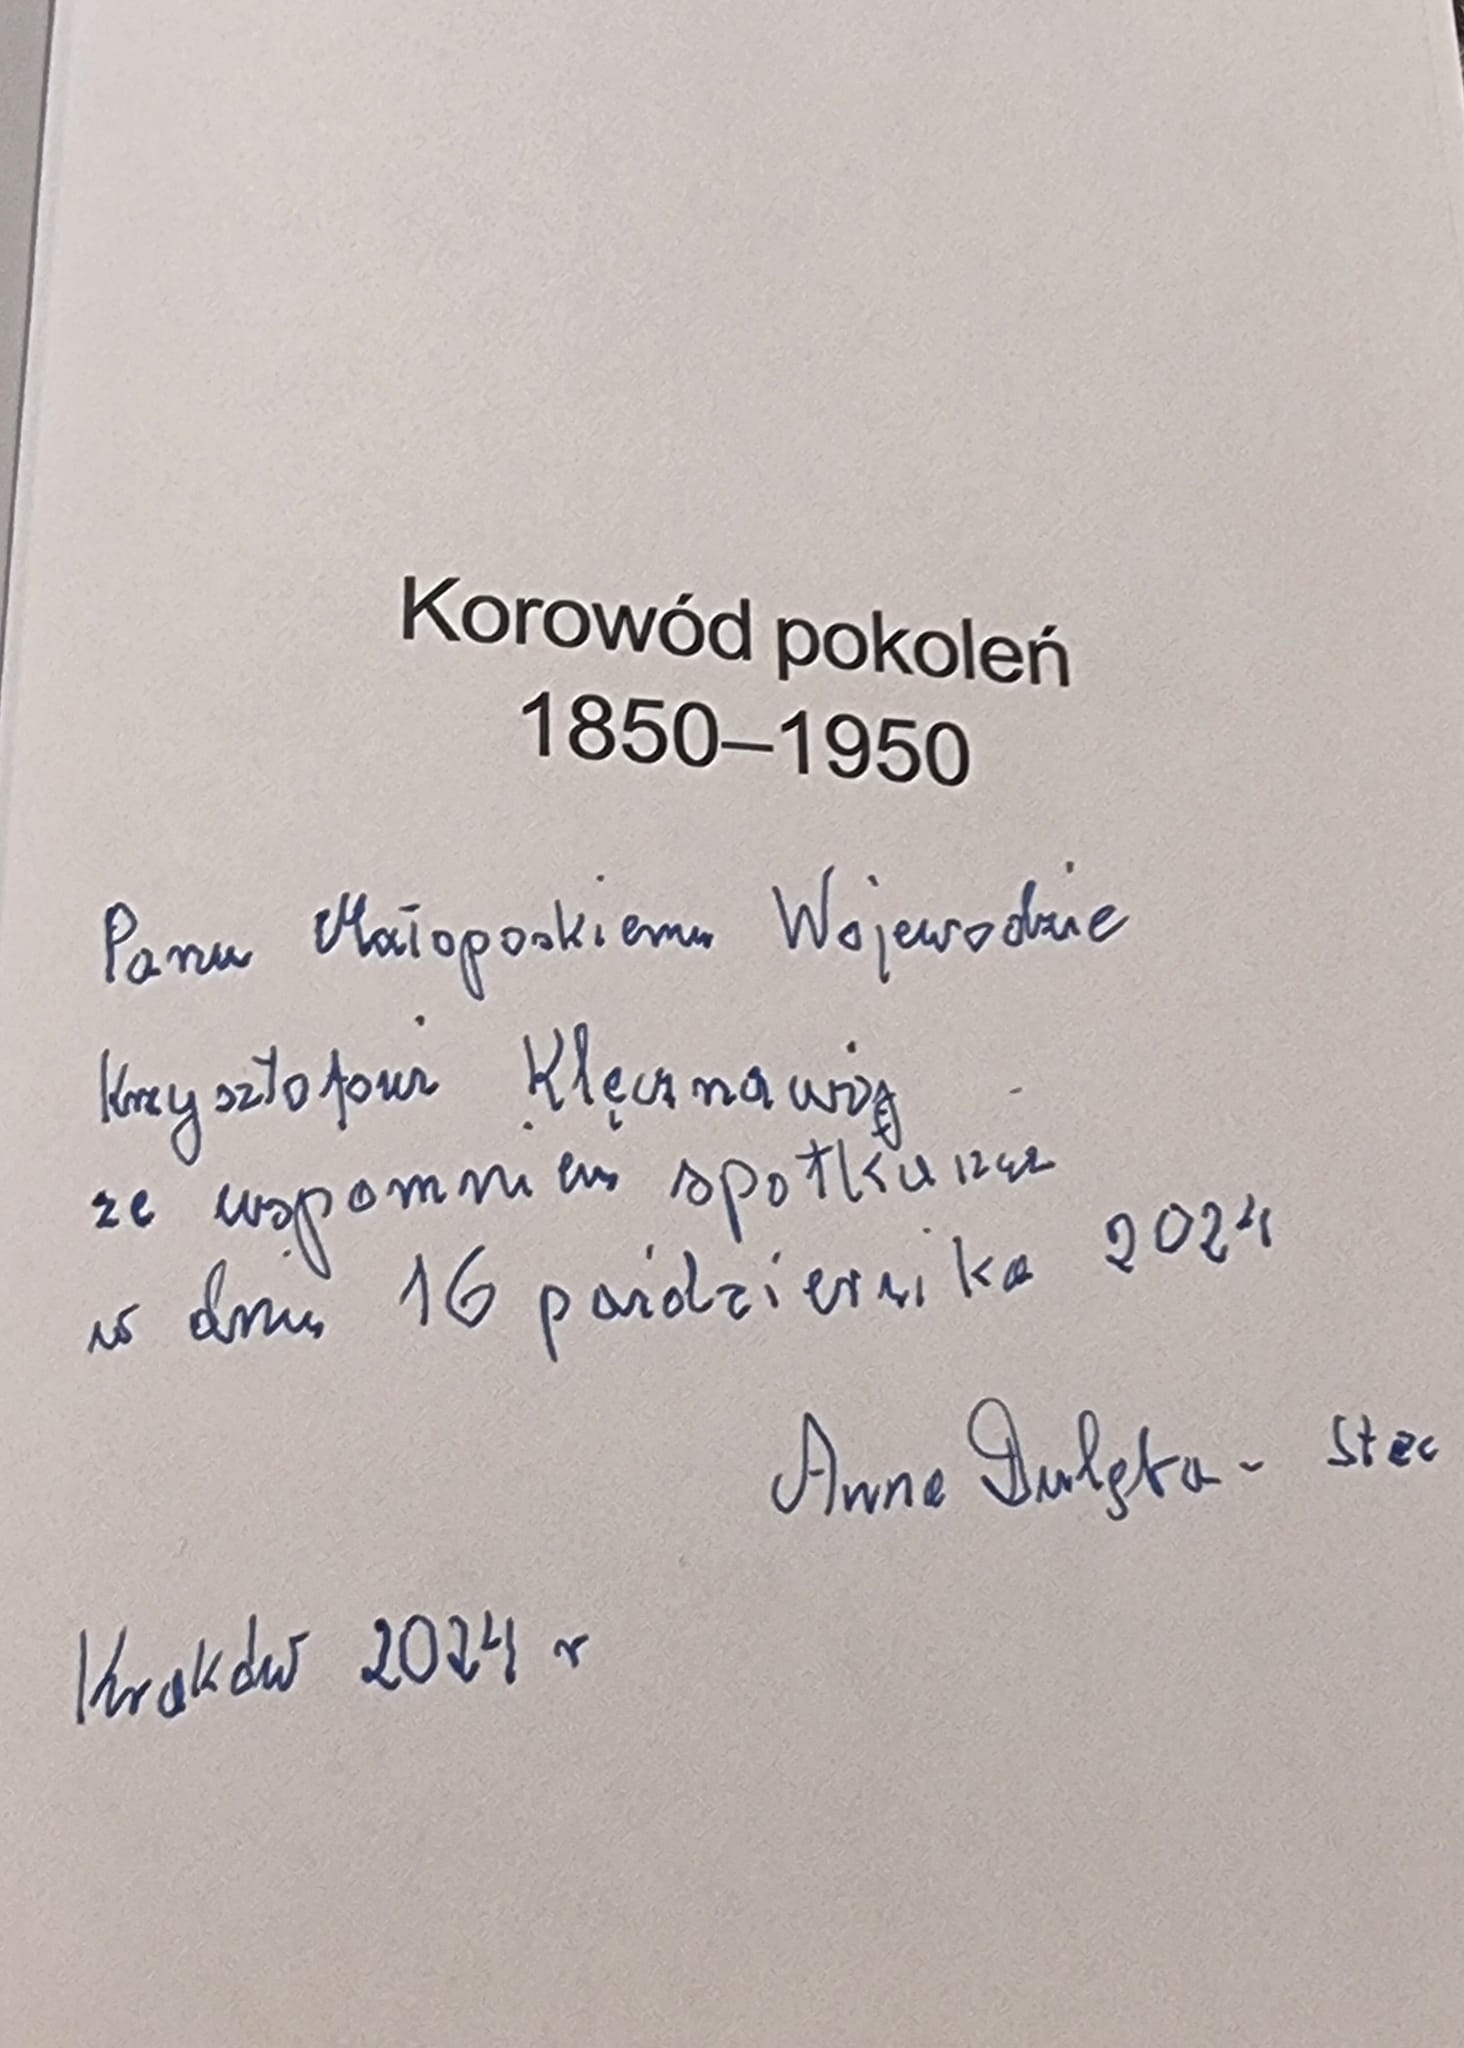 Korowód pokoleń
1850–1950
Panu Małoposkiemu Wojewodzie
Krzysztofowi Klęcznarowi
ze wspomnień
w dniu 16 października 2024
Anna Dulęba - Stec
Kraków 2024 r